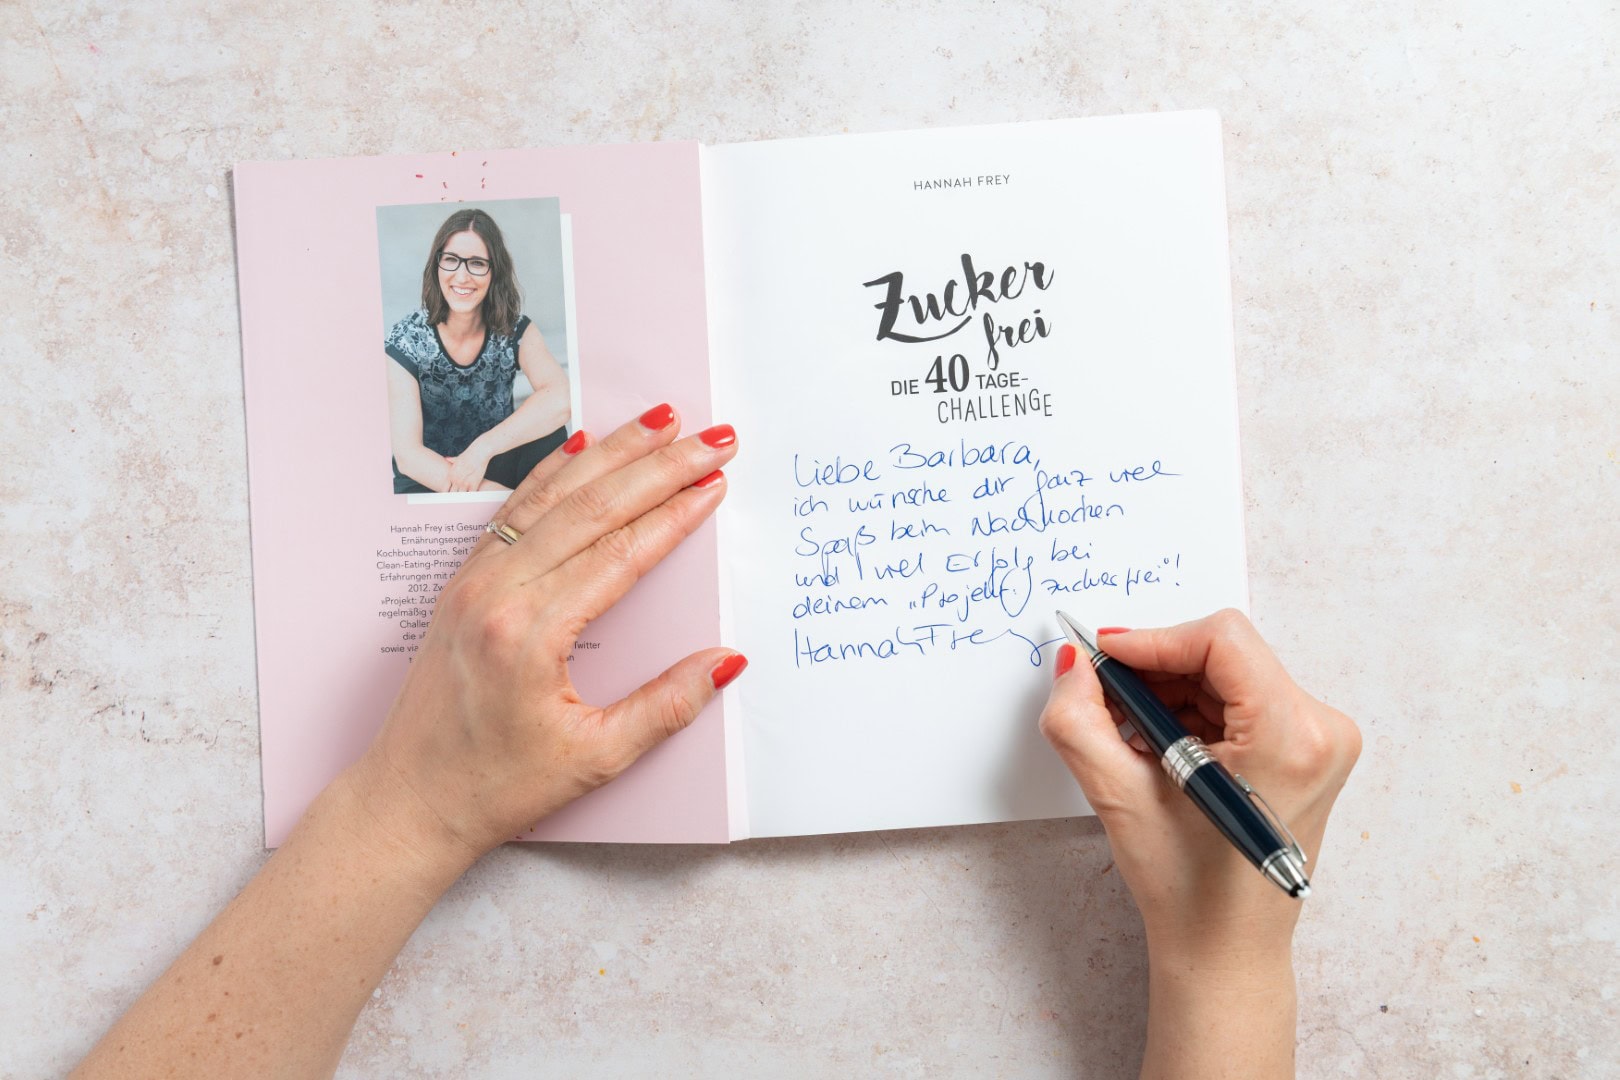 Hannah Frey ist Gesund
Ernährungsexperti
Kochbuchautorin. Seit
Clean-Eating-Prinzip
Erfahrungen mit
2012. Zw
»Projekt: Zuck
regelmäßig v
Challer
die
sowie via Twitter
HANNAH FREY
Zucker
frei
DIE 40 TAGE-
CHALLENGE
Liebe Barbara,
ich wünsche dir ganz viel
Spaß beim Nachkochen
und viel Erfolg bei
deinem „Projekt: zuckerfrei"!
Hannah Frey